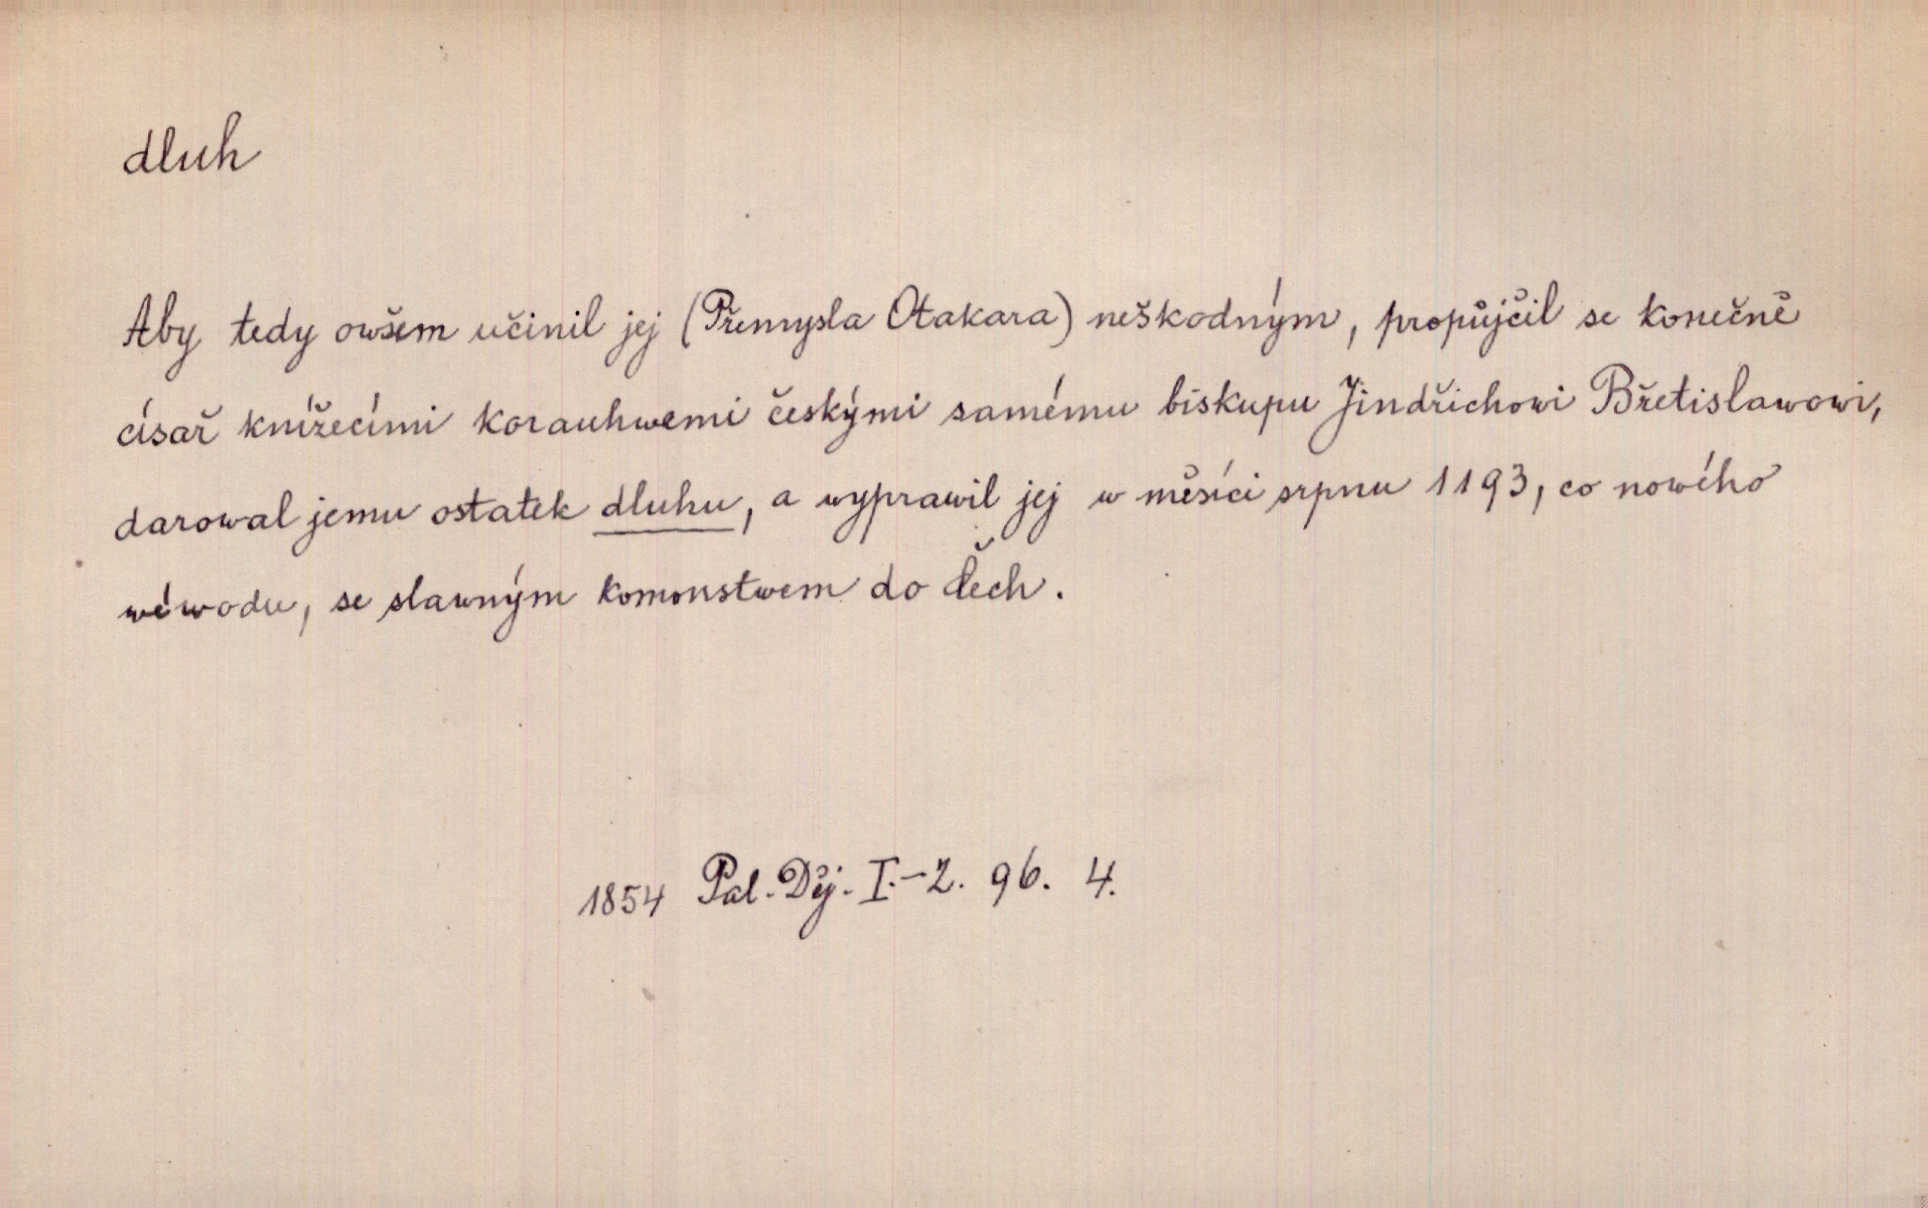 dluh
Aby tedy owšem učinil jej (Přemysla Otakara) neškodným, propůjčil se konečně
císař knížecími korauhwemi českými samému biskupu Jindřichowi Břetislawowi,
darowal jemu ostatek dluhu, a wyprawil jej w měsíci srpnu 1193, co nowého
wéwodu, se slawným komonstwem do Čech.
1854 Pal. Děj. I.-2. 96. 4.